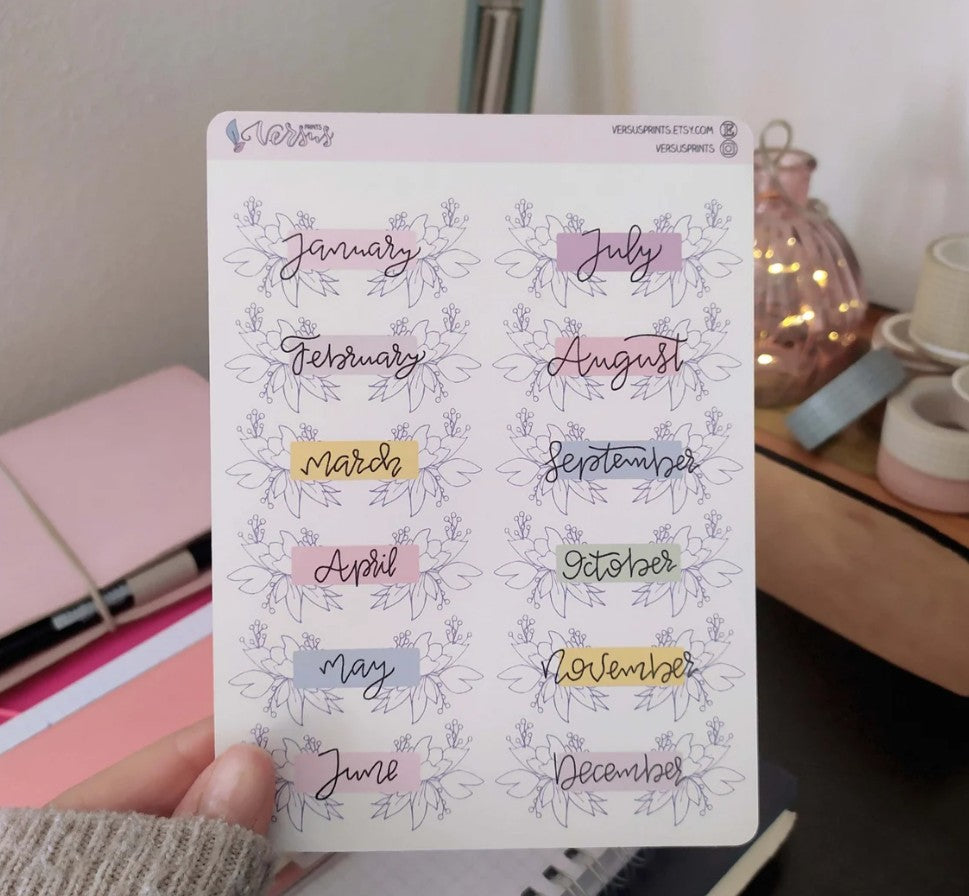 Versus
PRINTS
VERSUSPRINTS.ETSY.COM
VERSUSPRINTS
January
February
March
April
May
June
July
August
September
October
November
December